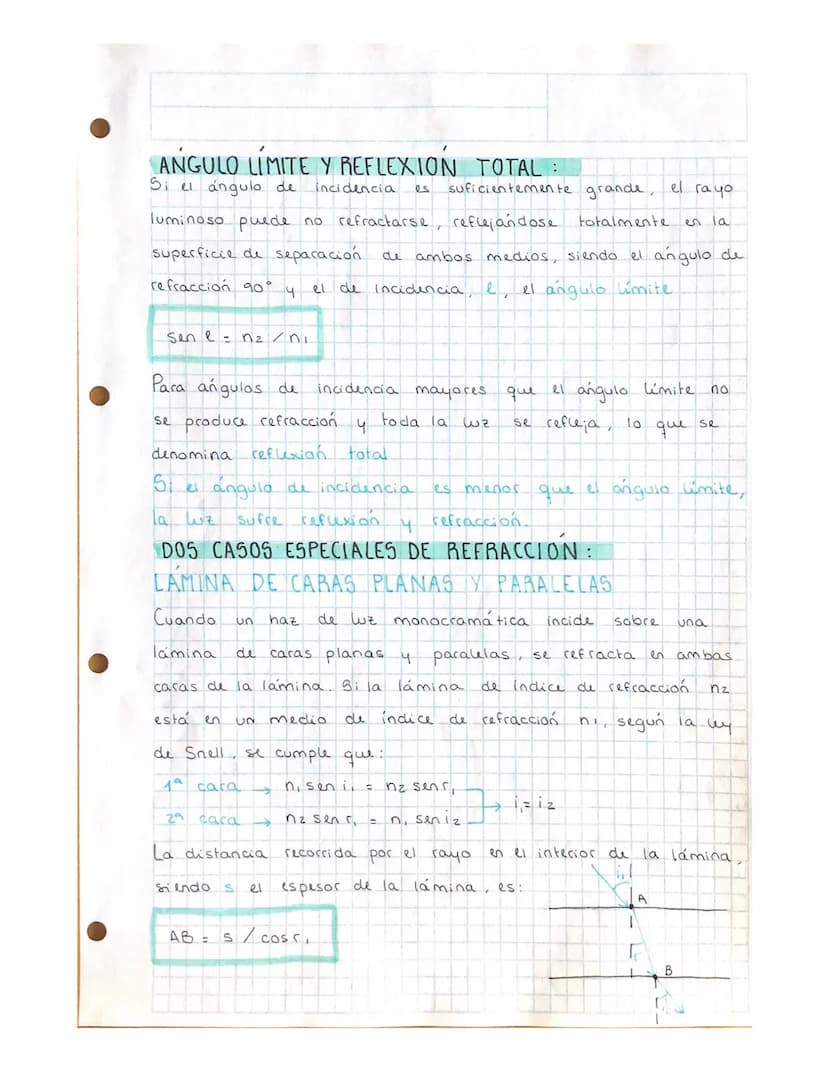 ÁNGULO LÍMITE Y REFLEXIÓN TOTAL :
Si el ángulo de incidencia es suficientemente grande, el rayo
luminoso puede no refractarse, reflejándose totalmente en la
superficie de separación de ambos medios, siendo el ángulo de
refracción 90° y el de incidencia, l, el ángulo límite
sen l = n2 / n1
Para ángulos de incidencia mayores que el ángulo límite no
se produce refracción y toda la luz se refleja, lo que se
denomina reflexión total
Si el ángulo de incidencia es menor que el ángulo límite,
la luz sufre reflexión y refracción.
DOS CASOS ESPECIALES DE REFRACCIÓN :
LÁMINA DE CARAS PLANAS Y PARALELAS
Cuando un haz de luz monocramática incide sobre una
lámina de caras planas y paralelas, se refracta en ambas
caras de la lámina. Si la lámina de índice de refracción n2
está en un medio de índice de refracción n1, según la ley
de Snell, se cumple que:
1ª cara → n1 sen i1 = n2 sen r1
→ i1 = i2
2ª cara → n2 sen r1 = n1 sen i2
La distancia recorrida por el rayo en el interior de la lámina,
siendo s el espesor de la lámina, es:
i1
A
AB = s / cos r1
r
B